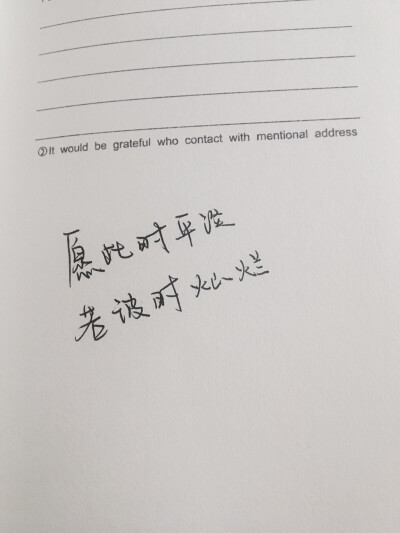 ②It would be grateful who contact with mentional address
愿此时平淡
若彼时灿烂